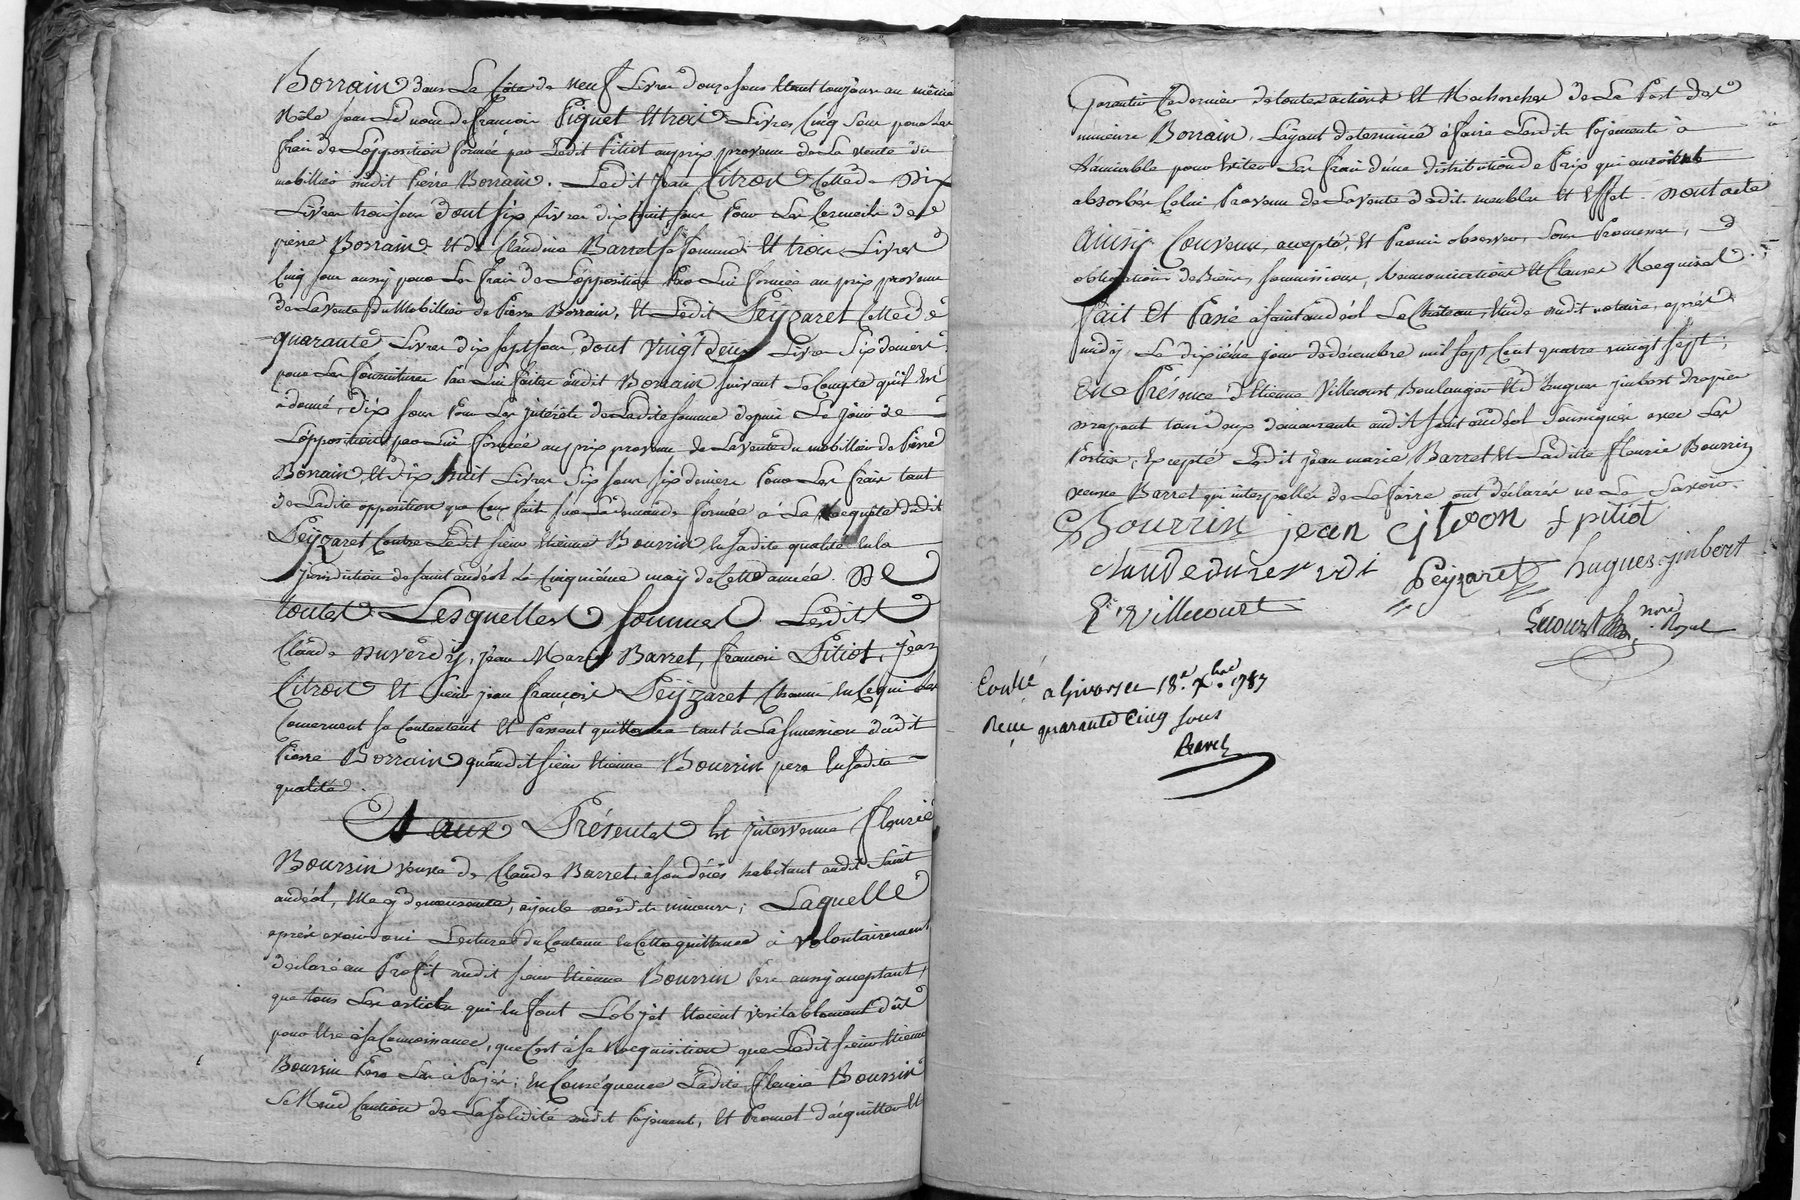 Borrain dans La Côte de neuf Livres douze sous Etant toujours au même
Rôle sous Le nom de françois Piquet Et trois Livres Cinq sous pour Les
frais de L'opposition formée par Ledit Pitiot au prix provenu de La vente du
mobillier dudit Pierre Borrain. Ledit jean Citron Celle de Dix
Livres trois sous dont six Livres dix huit sous Pour Les Cercueils de
pierre Borrain Et de Claudine Barret sa femme Et trois Livres
Cinq sous aussy pour Les frais de L'opposition Par Lui formée au prix provenu
de La vente du Mobillier de Pierre Borrain, Et Ledit Peyzaret Celle de
quarante Livres dix sept sous, dont vingt deux Livres Six deniers
pour Les fournitures Par Lui faites audit Borrain suivant Le Compte qu'il En
a donné, dix sous Pour Les jntérêts de Ladite somme depuis Le jour de
L'opposition par Lui formée au prix provenu de La vente du mobillier de Pierre
Borrain, Et dix huit Livres Six sous six deniers Pour Les frais tant
de Ladite opposition que Ceux faits sur La demande formée à La Requête dudit
Peyzaret Contre Ledit sieur Etienne Bourrin En sadite qualité En la
jurisdiction de saint andéol Le Cinquiéme may de Cette année. De
toutes Lesquelles sommes Lesdits
Claude Duverdy, jean Marie Barret, françois Pitiot, jean
Citron Et sieur jean françois Peyzaret Chacun En Ce qui Les
Concernent se Contentent Et Passent quittance tant à La succession dudit
Pierre Borrain qu'audit sieur Etienne Bourrin pere En sadite
qualité.
Et aux Présentes Est jntervenue fleurie
Bourrin veuve de Claude Barret, à son décès habitant audit Saint
andéol, Elle y demeurante, ayeule desdits mineurs; Laquelle
après avoir oui Lecture du Contenu En Cette quittance à volontairement
déclaré au Profit dudit sieur Etienne Bourrin Pere aussy acceptant,
que tous Les articles qui En font L'objet étoient véritablement dûs
pour Etre à sa Connoissance, que C'est à sa Réquisition que Ledit sieur Etienne
Bourrin Pere Les à Payés; En Conséquence Ladite fleurie Bourrin
Se Rend Caution de La solidité dudit Payement, Et Promet d'acquitter Et
Garantir Ce dernier de toutes actions Et Recherches de La Part des
mineurs Borrain, L'ayant déterminé à faire Lesdits Payements à
L'amiable pour Eviter Les frais d'une distribution de Prix qui auroient
absorbés Celui Provenu de La vente desdits meubles Et Effets. Dont acte
Ainsy Convenu, accepté, Et Promis observer, sous Promesses,
obligations de Biens, soumissions, Renonciations Et Clauses Requises.
fait Et Passé à saint andéol Le Château, Etude dudit notaire, après
midy, Le dixième jour de décembre mil sept Cent quatre vingt sept;
En Présence d'Etienne Villecourt Boulanger Et d'hugues jmbert drapier
drapant tous deux demeurants audit saint andéol soussignés avec Les
Parties, Excepté Ledit jean marie Barret Et Laditte fleurie Bourrin
veuve Barret qui interpellés de Le faire ont déclarés ne Le Savoir.
Bourrin jean citron f pitiot
claude duverdi Peyzaret hugues jmbert
E. Villecourt
nore Royal
Contlé a Givors le 18e Xbre 1787
Reçu quarante Cinq sous
Ravel